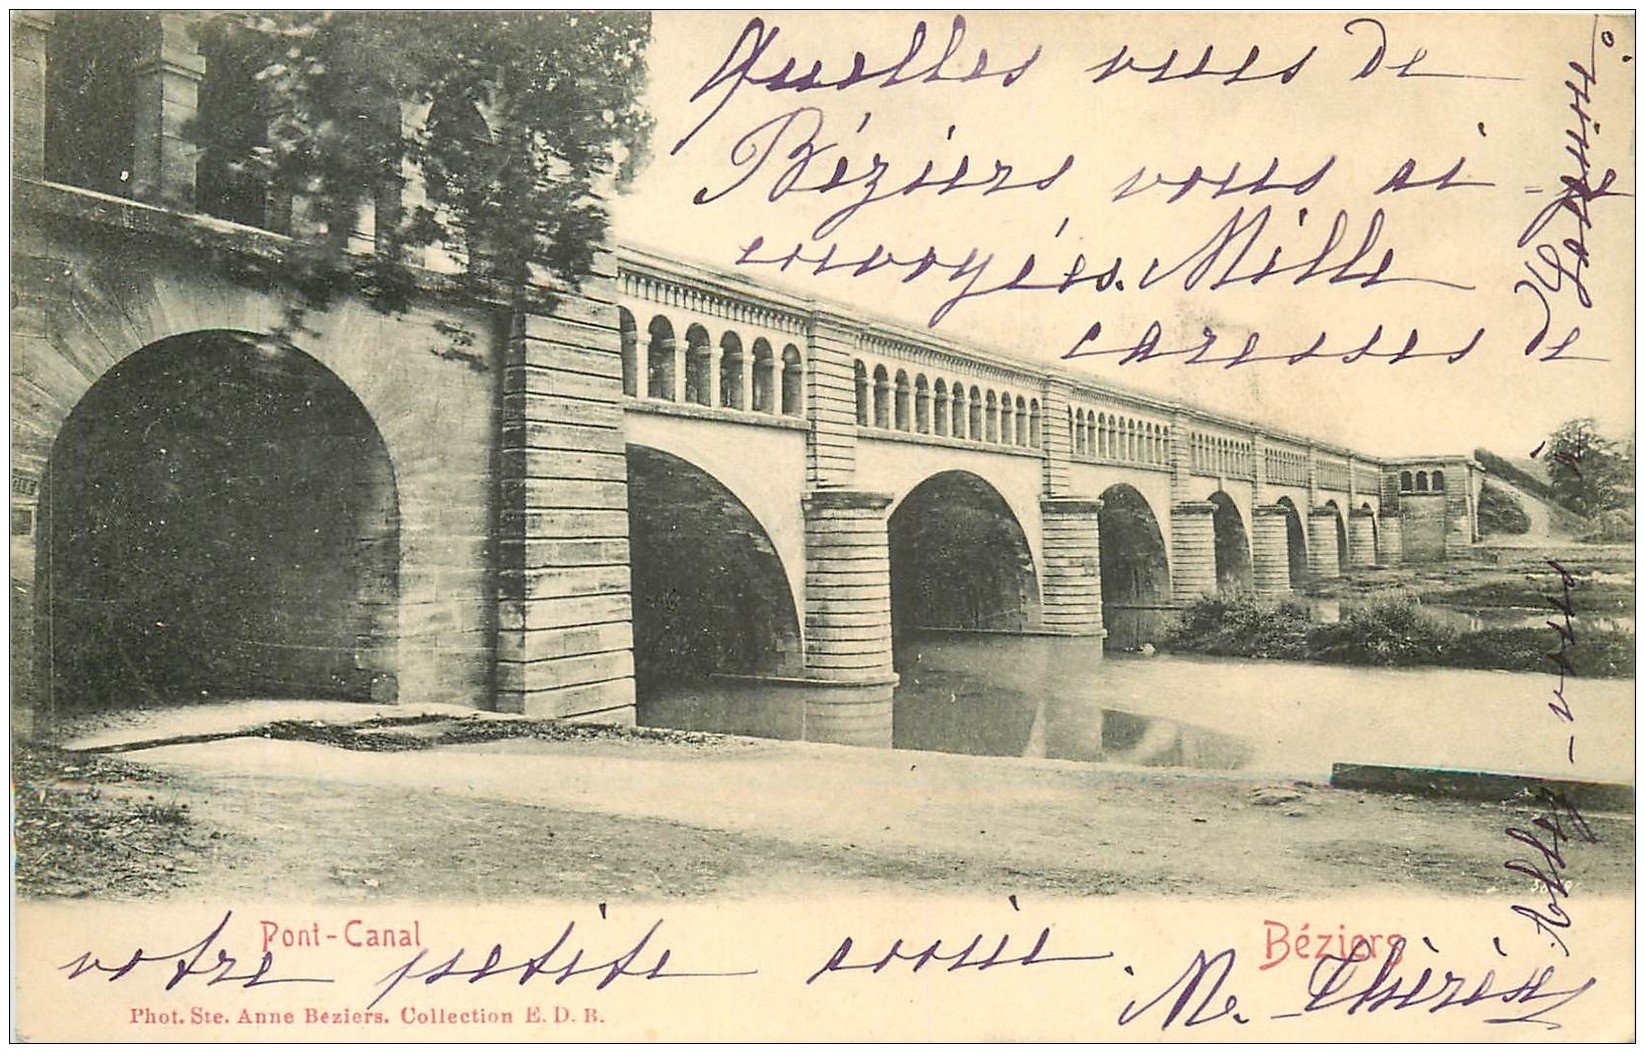 Quelles vues de
Béziers vous ai-je
envoyées. Mille
caresses de
votre petite amie.
M. Thérèse
Allez-vous à
Pont-Canal
Béziers
Phot. Ste. Anne Béziers. Collection E. D. B.